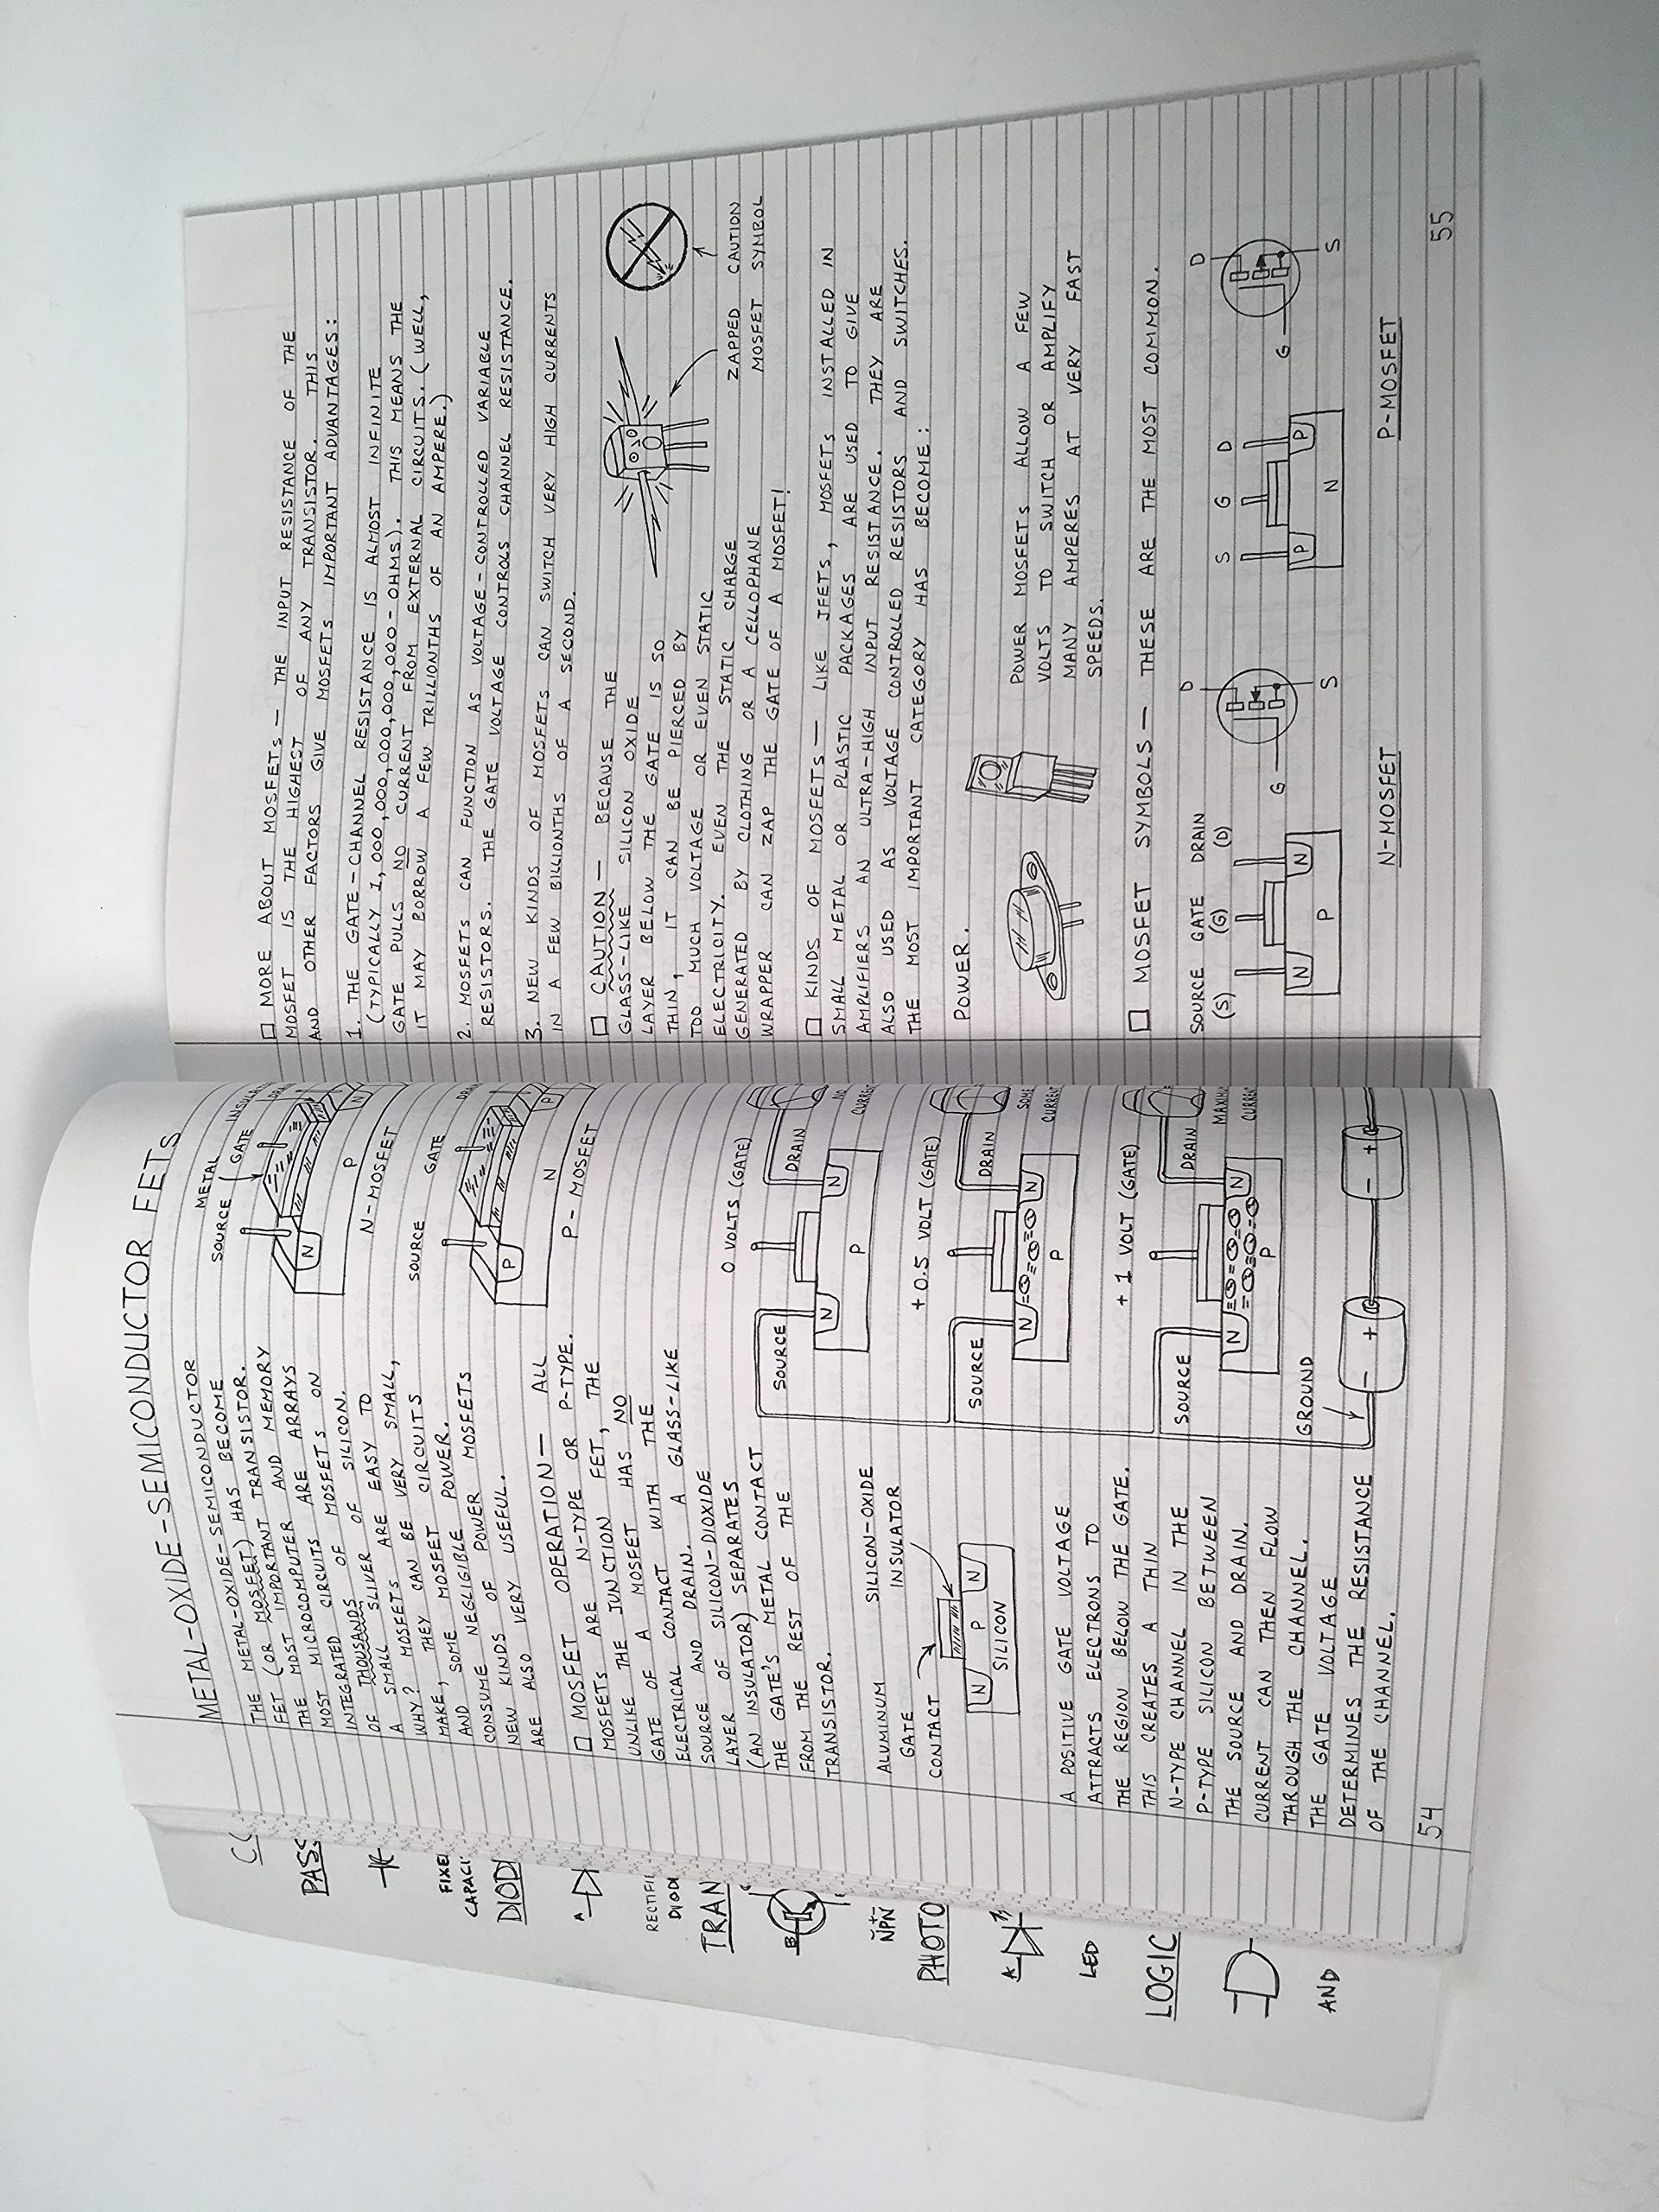 METAL-OXIDE-SEMICONDUCTOR FETS
THE METAL-OXIDE-SEMICONDUCTOR
FET (OR MOSFET) HAS BECOME
THE MOST IMPORTANT TRANSISTOR.
MOST MICROCOMPUTER AND MEMORY
INTEGRATED CIRCUITS ARE ARRAYS
OF THOUSANDS OF MOSFETS ON
A SMALL SLIVER OF SILICON.
WHY? MOSFETS ARE EASY TO
MAKE, THEY CAN BE VERY SMALL,
AND SOME MOSFET CIRCUITS
CONSUME NEGLIGIBLE POWER.
NEW KINDS OF POWER MOSFETS
ARE ALSO VERY USEFUL.
METAL
SOURCE
GATE
N
P
N
N-MOSFET
SOURCE
GATE
P
N
P
P-MOSFET
□ MOSFET OPERATION — ALL
MOSFETS ARE N-TYPE OR P-TYPE.
UNLIKE THE JUNCTION FET, THE
GATE OF A MOSFET HAS NO
ELECTRICAL CONTACT WITH THE
SOURCE AND DRAIN. A GLASS-LIKE
LAYER OF SILICON-DIOXIDE
(AN INSULATOR) SEPARATES
THE GATE'S METAL CONTACT
FROM THE REST OF THE
TRANSISTOR.
ALUMINUM
GATE
CONTACT
SILICON-OXIDE
INSULATOR
N P N
SILICON
A POSITIVE GATE VOLTAGE
ATTRACTS ELECTRONS TO
THE REGION BELOW THE GATE.
THIS CREATES A THIN
N-TYPE CHANNEL IN THE
P-TYPE SILICON BETWEEN
THE SOURCE AND DRAIN.
CURRENT CAN THEN FLOW
THROUGH THE CHANNEL.
THE GATE VOLTAGE
DETERMINES THE RESISTANCE
OF THE CHANNEL.
0 VOLTS (GATE)
SOURCE
DRAIN
N N
P
NO
+0.5 VOLT (GATE)
SOURCE
DRAIN
N N
P
SOME
+1 VOLT (GATE)
SOURCE
DRAIN
N N
P
GROUND
- + - +
54
□ MORE ABOUT MOSFETS — THE INPUT RESISTANCE OF THE
MOSFET IS THE HIGHEST OF ANY TRANSISTOR. THIS
AND OTHER FACTORS GIVE MOSFETS IMPORTANT ADVANTAGES:
1. THE GATE-CHANNEL RESISTANCE IS ALMOST INFINITE
(TYPICALLY 1,000,000,000,000,000-OHMS). THIS MEANS THE
GATE PULLS NO CURRENT FROM EXTERNAL CIRCUITS. (WELL,
IT MAY BORROW A FEW TRILLIONTHS OF AN AMPERE.)
2. MOSFETS CAN FUNCTION AS VOLTAGE-CONTROLLED VARIABLE
RESISTORS. THE GATE VOLTAGE CONTROLS CHANNEL RESISTANCE.
3. NEW KINDS OF MOSFETS CAN SWITCH VERY HIGH CURRENTS
IN A FEW BILLIONTHS OF A SECOND.
□ CAUTION — BECAUSE THE
GLASS-LIKE SILICON OXIDE
LAYER BELOW THE GATE IS SO
THIN, IT CAN BE PIERCED BY
TOO MUCH VOLTAGE OR EVEN STATIC
ELECTRICITY. EVEN THE STATIC CHARGE
GENERATED BY CLOTHING OR A CELLOPHANE
WRAPPER CAN ZAP THE GATE OF A MOSFET!
ZAPPED MOSFET
CAUTION SYMBOL
□ KINDS OF MOSFETS — LIKE JFETS, MOSFETS INSTALLED IN
SMALL METAL OR PLASTIC PACKAGES ARE USED TO GIVE
AMPLIFIERS AN ULTRA-HIGH INPUT RESISTANCE. THEY ARE
ALSO USED AS VOLTAGE CONTROLLED RESISTORS AND SWITCHES.
THE MOST IMPORTANT CATEGORY HAS BECOME:
POWER.
POWER MOSFETS ALLOW A FEW
VOLTS TO SWITCH OR AMPLIFY
MANY AMPERES AT VERY FAST
SPEEDS.
□ MOSFET SYMBOLS — THESE ARE THE MOST COMMON.
SOURCE GATE DRAIN
(S) (G) (D)
N N
P
D
G
S
N-MOSFET
S G D
P P
N
D
G
S
P-MOSFET
55
PASS
FIXE
CAPACI
DIOD
A
RECTIFI
DIOD
TRAN
B
NPN
PHOTO
A
LED
LOGIC
AND